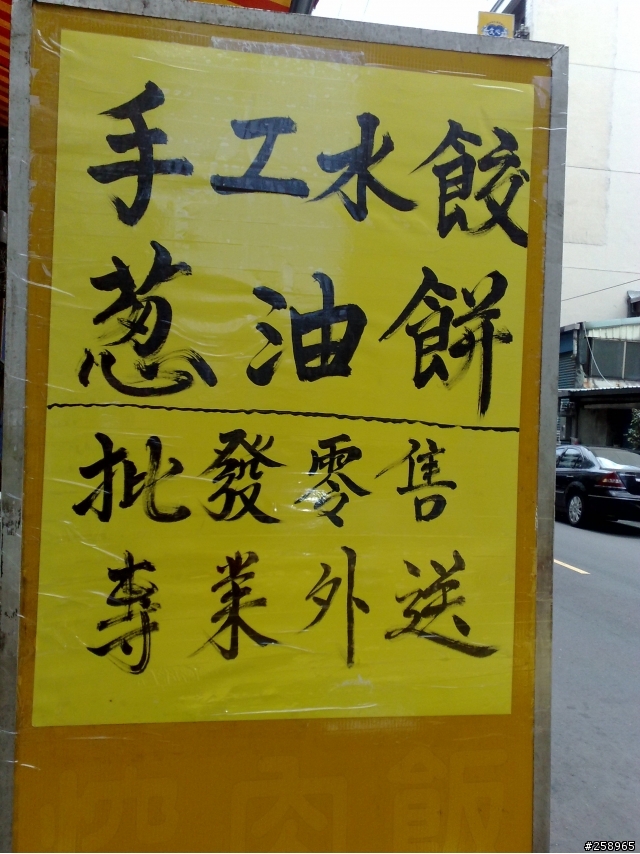 手工水餃
葱油餅
批發零售
專業外送
肉飯
#258965